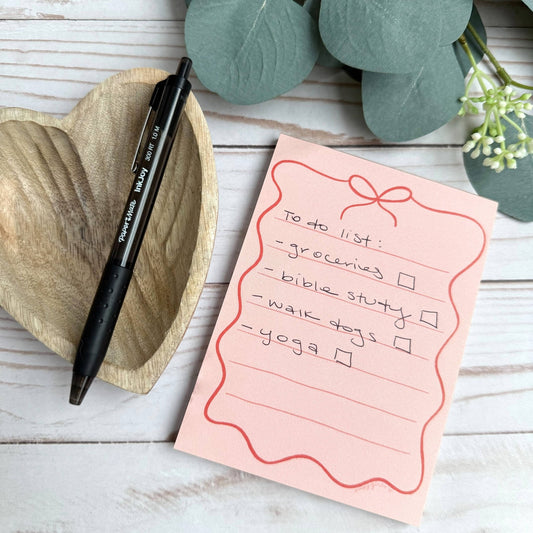 To do list:
- groceries ☐
- bible study ☐
- walk dogs ☐
- yoga ☐
PAPER MATE InkJoy 300 RT 1.0 M